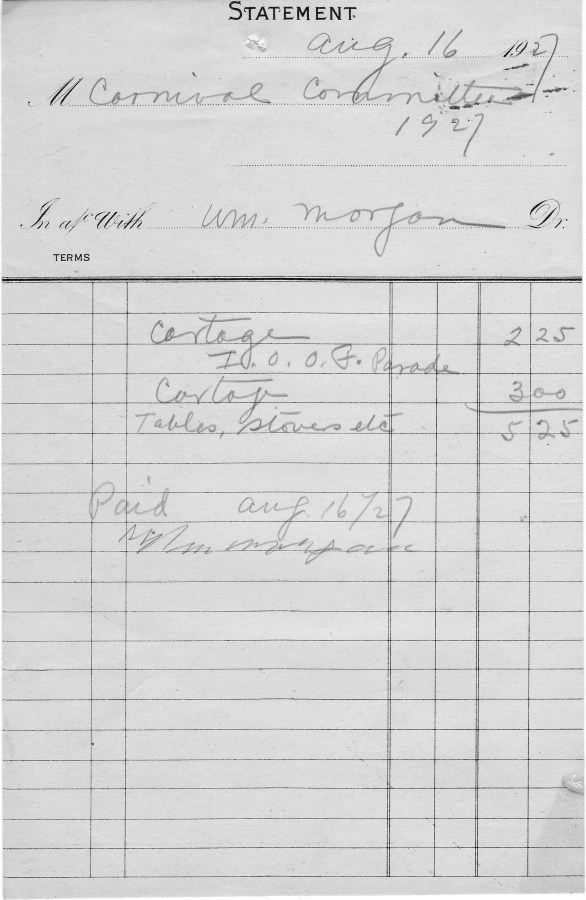 STATEMENT
Aug. 16 1927
M Carnival Committee
1927
In a/c With Wm. Morgan Dr.
TERMS
Cartage 2 25
I. O. O. F. Parade
Cartage 3 00
Tables, Stoves etc 5 25
Paid Aug 16/27
Wm Morgan